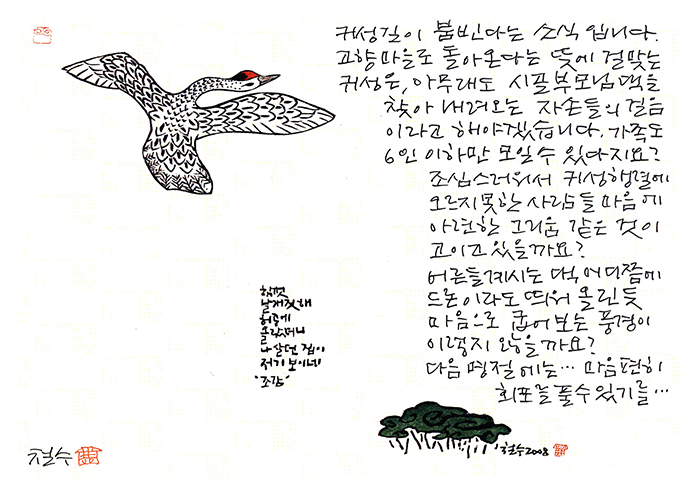 귀성길이 붐빈다는 소식 입니다.
고향마을로 돌아온다는 뜻에 걸맞는
귀성은, 아무래도 시골부모님댁을
찾아 내려오는 자손들의 걸음
이라고 해야겠습니다. 가족도
6인 이하만 모일 수 있다지요?
조심스러워서 귀성행렬에
오르지 못한 사람들 마음에
아련한 그리움 같은 것이
고이고 있을까요?
어른들 계시는 댁 어디쯤에
드론이라도 띄워 올린 듯
마음으로 굽어 보는 풍경이
이렇지 않을까요?
다음 명절에는··· 마음편히
회포를 풀 수 있기를···
힘껏
날개짓해
허공에
올랐더니
나 살던 집이
저기 보이네!
"조감"
철수2008
철수